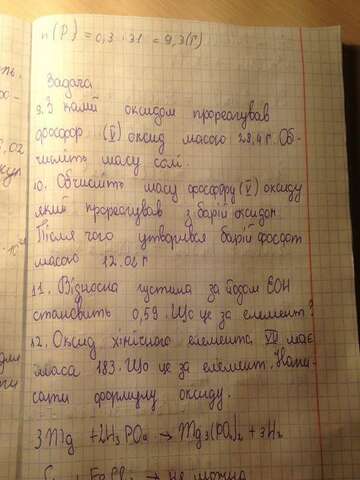 n(P) = 0,3 · 31 = 9,3(г)
Задача
9. З калій оксидом прореагував
фосфор (V) оксид масою 28,4 г. Об-
числіть масу солі.
10. Обчисліть масу фосфору (V) оксиду
який прореагував з барій оксидом
Після чого утворився барій фосфат
масою 12.02 г
11. Відносна густина за йодом EOH
становить 0,59. Що це за елемент?
12. Оксид хімічного елемента VII має
маса 183. Що це за елемент. Напи-
сати формулу оксиду.
3Mg + 2H₃PO₄ → Mg₃(PO₄)₂ + 3H₂
→ не можна